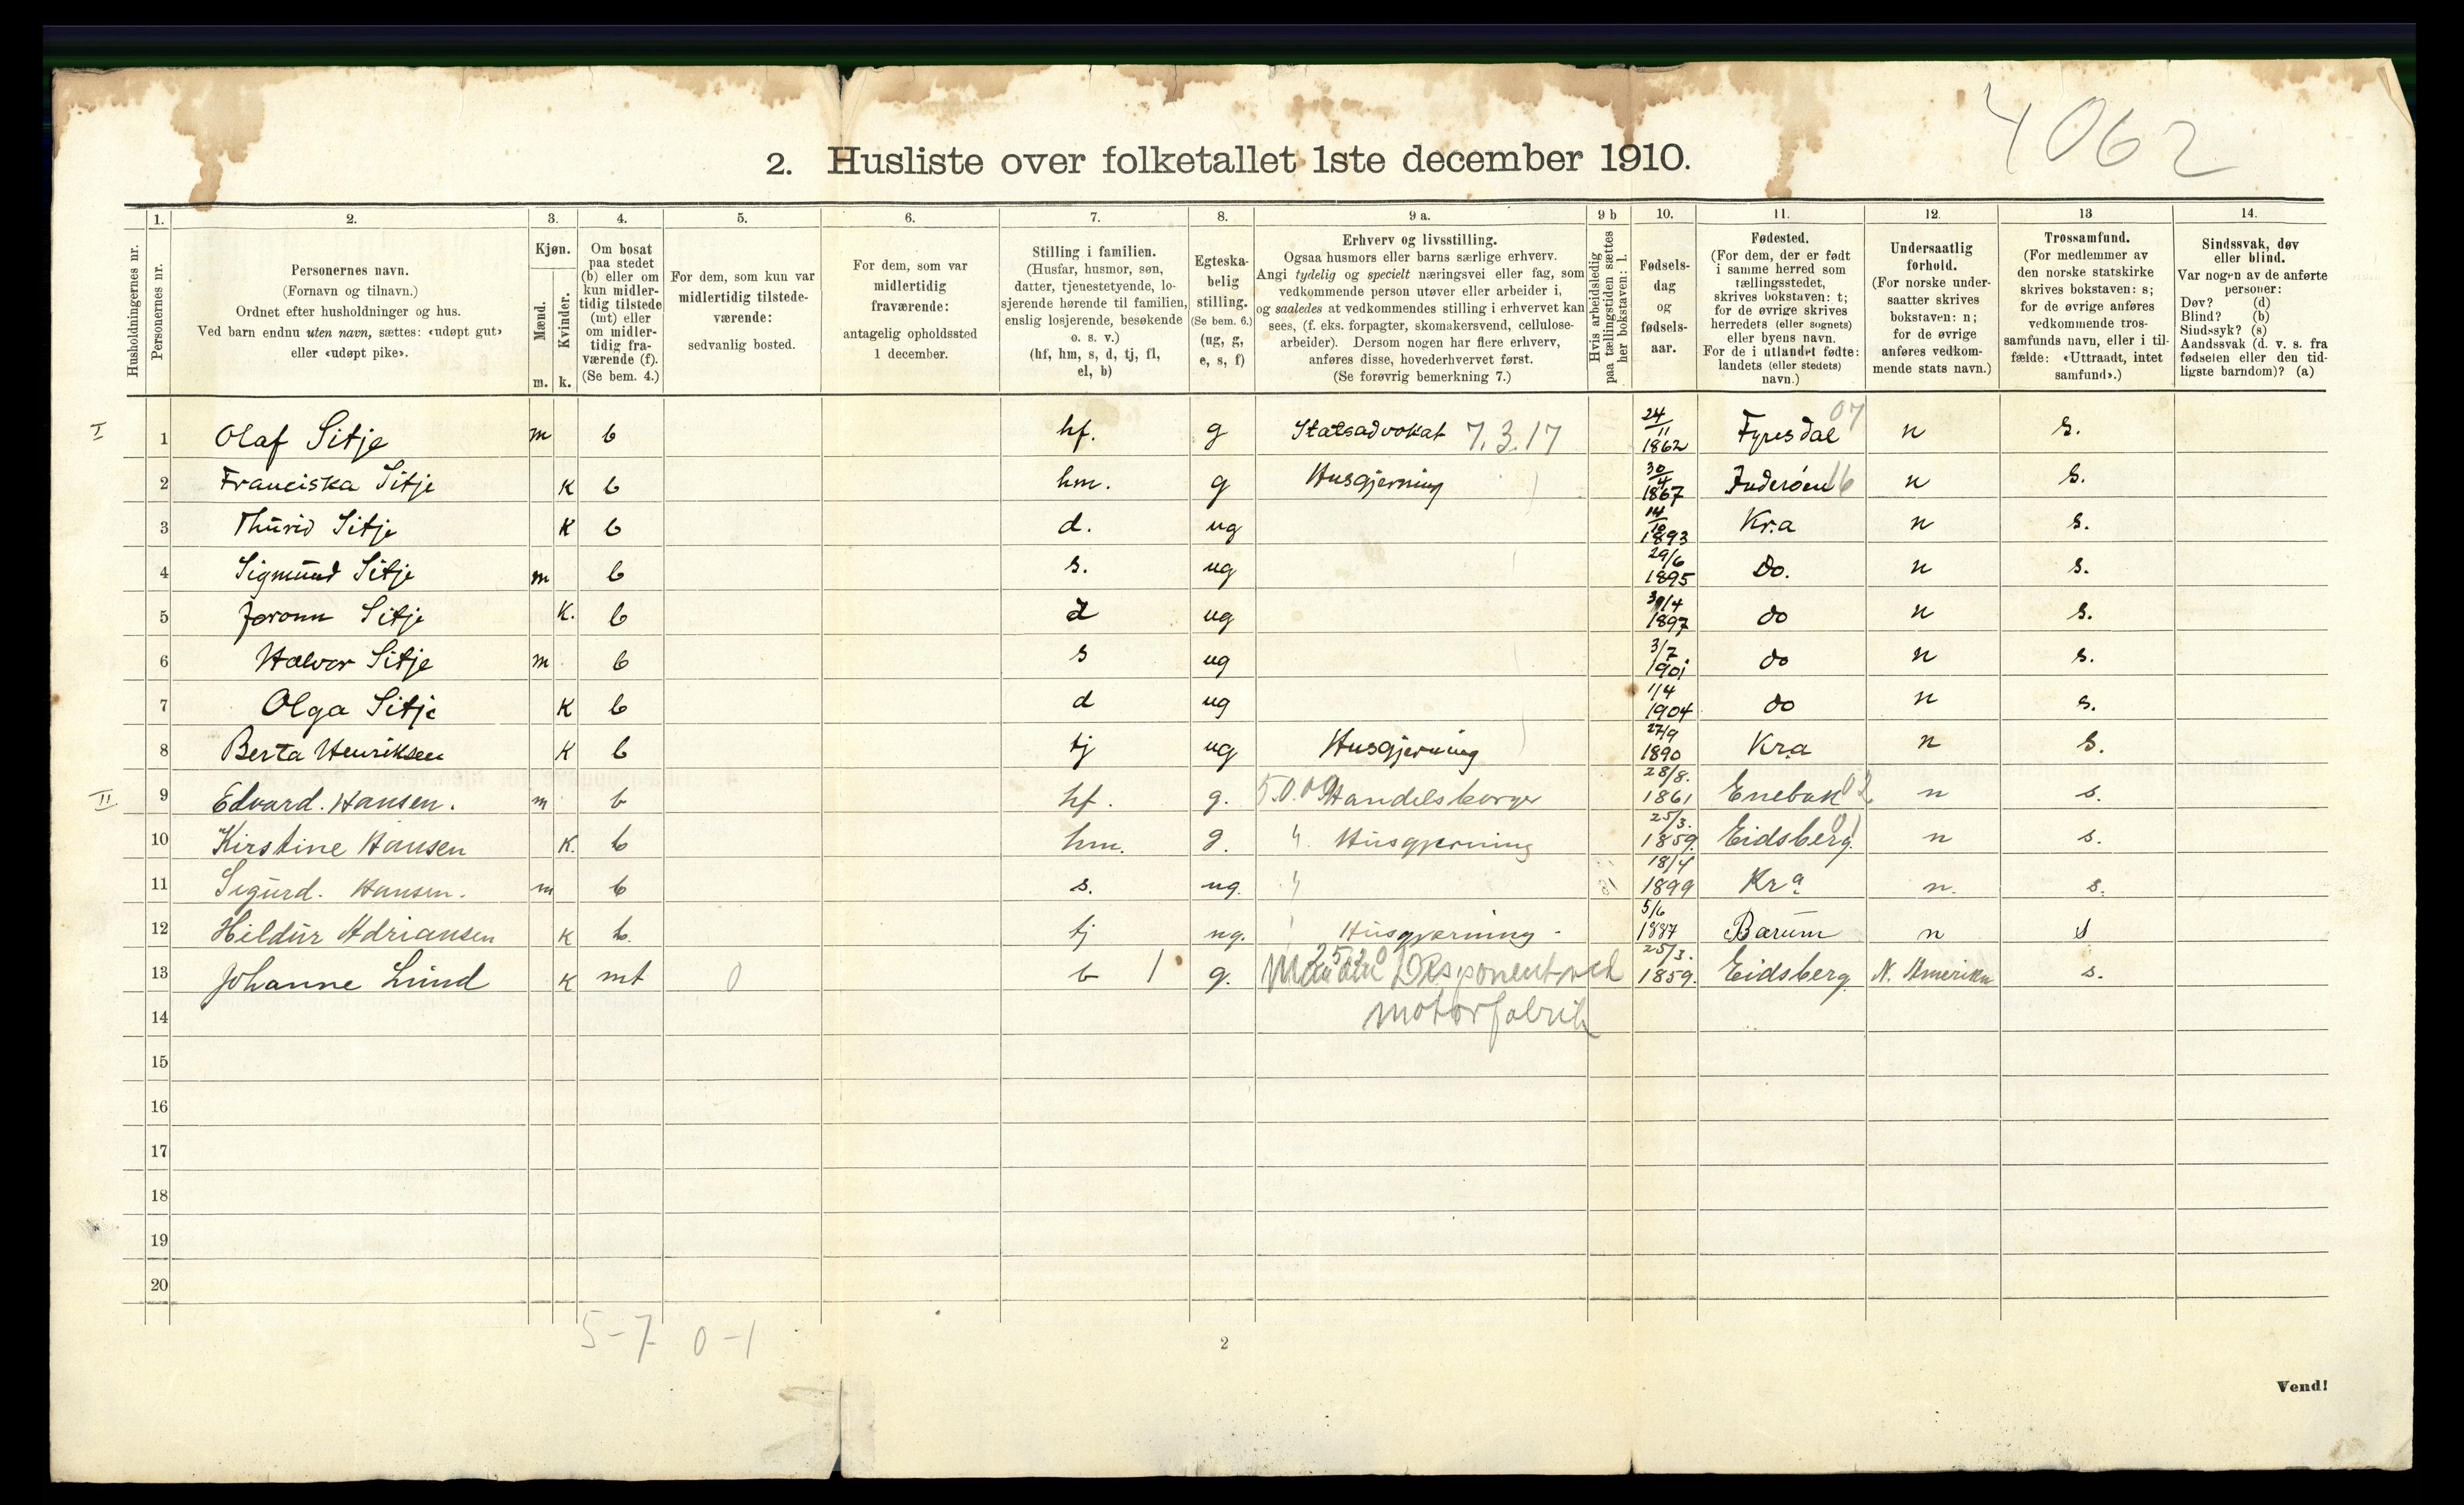 4062
2. Husliste over folketallet 1ste december 1910.
1. 2. 3. 4. 5. 6. 7. 8. 9 a. 9 b 10. 11. 12. 13 14.
Husholdningernes nr.
Personernes nr.
Personernes navn.
(Fornavn og tilnavn.)
Ordnet efter husholdninger og hus.
Ved barn endnu uten navn, sættes: «udøpt gut»
eller «udøpt pike».
Kjøn.
Mænd.
Kvinder.
m. k.
Om bosat
paa stedet
(b) eller om
kun midler-
tidig tilstede
(mt) eller
om midler-
tidig fra-
værende (f).
(Se bem. 4.)
For dem, som kun var
midlertidig tilstede-
værende:
sedvanlig bosted.
For dem, som var
midlertidig
fraværende:
antagelig opholdssted
1 december.
Stilling i familien.
(Husfar, husmor, søn,
datter, tjenestetyende, lo-
sjerende hørende til familien,
enslig losjerende, besøkende
o. s. v.)
(hf, hm, s, d, tj, fl,
el, b)
Egteska-
belig
stilling.
(Se bem. 6.)
(ug, g,
e, s, f)
Erhverv og livsstilling.
Ogsaa husmors eller barns særlige erhverv.
Angi tydelig og specielt næringsvei eller fag, som
vedkommende person utøver eller arbeider i,
og saaledes at vedkommendes stilling i erhvervet kan
sees, (f. eks. forpagter, skomakersvend, cellulose-
arbeider). Dersom nogen har flere erhverv,
anføres disse, hovederhvervet først.
(Se forøvrig bemerkning 7.)
Hvis arbeidsledig
paa tællingstiden sættes
her bokstaven: l.
Fødsels-
dag
og
fødsels-
aar.
Fødested.
(For dem, der er født
i samme herred som
tællingsstedet,
skrives bokstaven: t;
for de øvrige skrives
herredets (eller sognets)
eller byens navn.
For de i utlandet fødte:
landets (eller stedets)
navn.)
Undersaatlig
forhold.
(For norske under-
saatter skrives
bokstaven: n;
for de øvrige
anføres vedkom-
mende stats navn.)
Trossamfund.
(For medlemmer av
den norske statskirke
skrives bokstaven: s;
for de øvrige anføres
vedkommende tros-
samfunds navn, eller i til-
fælde: «Uttraadt, intet
samfund».)
Sindssvak, døv
eller blind.
Var nogen av de anførte
personer:
Døv? (d)
Blind? (b)
Sindssyk? (s)
Aandssvak (d. v. s. fra
fødselen eller den tid-
ligste barndom)? (a)
I 1 Olaf Sitje m b hf. g Statsadvokat 7.3.17 24/11 1862 Fyresdal 07 n s.
2 Franciska Sitje K b hm. g Husgjerning 30/4 1867 Inderøen 16 n s.
3 Thurid Sitje K b d. ug 14/10 1893 Kr.a n s.
4 Sigmund Sitje m b s. ug 29/6 1895 Do. n s.
5 Joronn Sitje K. b d ug 1897 do n s.
6 Halvor Sitje m b s ug 3/7 1901 do n s.
7 Olga Sitje K b d ug 1/4 1904 do n s.
8 Berta Henriksen K b tj ug Husgjerning 27/9 1890 Kr.a n s.
II 9 Edvard. Hansen. m b hf. g. 5.0.09 Handelsborger 28/8. 1861 Enebak 02 n s.
10 Kirstine Hansen K. b hm. g. " Husgjerning 25/3. 1859. Eidsberg. 01 n s.
11 Sigurd. Hansen. m b s. ug. " 18/4 1899 Kra n. s.
12 Hildur Adriansen K b. tj ug. Husgjerning - 5/6 1887 Bærum n s
13 Johanne Lund K mt 0 b 1 g. Disponent ved 25/3. 1859. Eidsberg. N. Amerika s.
14 motorfabrik
15
16
17
18
19
20
5-7 0-1
2
Vend!